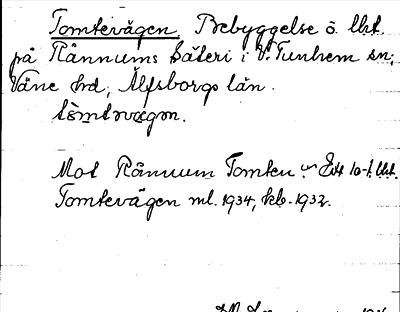 Tomtevägen, Bebyggelse ö. lht.
på Rånnums säteri i V. Tunhem sn;
Väne hd, Älfsborgs län.
Mot Rånnum Tomten Ext 10-f. lht.
Tomtevägen ml. 1934, kb. 1932.